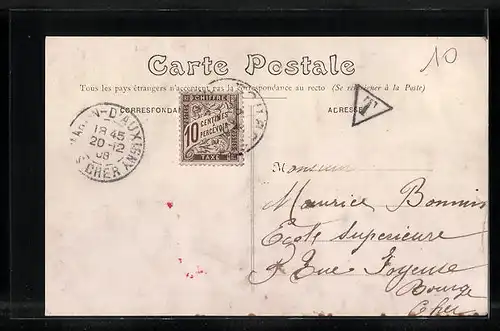 10
Carte Postale
Tous les pays étrangers n'acceptent pas la correspondance au recto (Se renseigner à la Poste)
CORRESPONDANCE
ADRESSE
T
CHIFFRE
10 CENTIMES À PERCEVOIR
TAXE
MARTIN-D'AUXIGNY
18 45
20-12
08
CHER
Monsieur
Maurice Bonnin
Ecole Superieure
Rue Joyeuse
Bourges
Cher